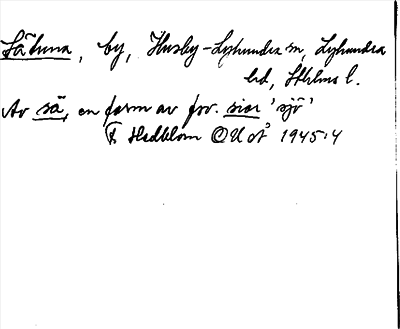 Såtuna, by, Husby-Lyhundra sn, Lyhundra
hd, Sthlms l.
Av så, en form av fsv. sior 'sjö'
F. Hedblom OUoÅ 1945:4